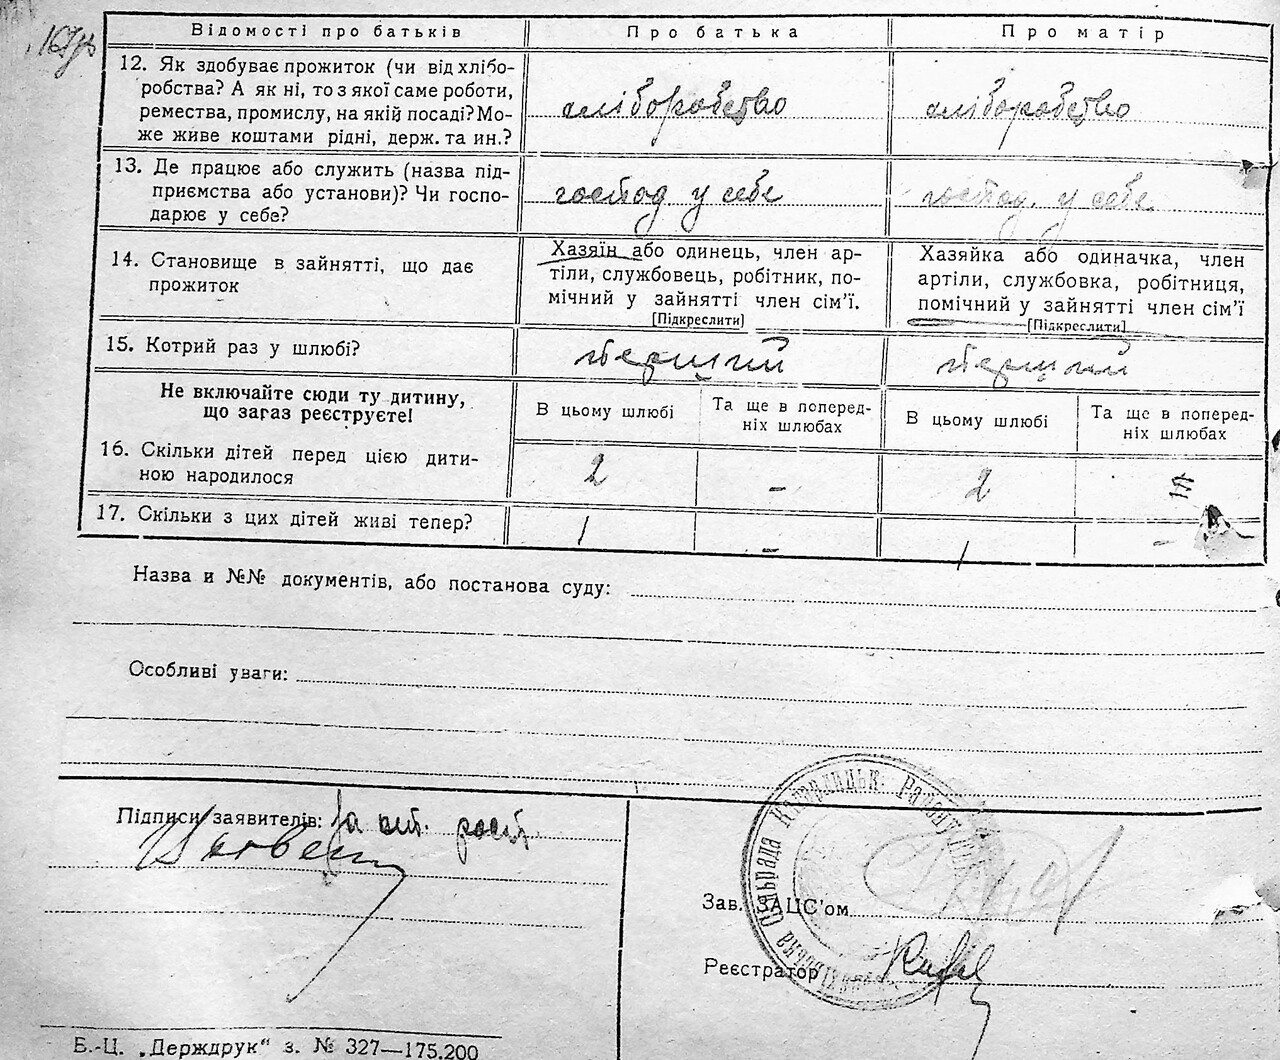 Відомості про батьків Про батька Про матір
12. Як здобуває прожиток (чи від хлібо-
робства? А як ні, то з якої саме роботи,
ремества, промислу, на якій посаді? Мо-
же живе коштами рідні, держ. та ин.?
хліборобство хліборобство
13. Де працює або служить (назва під-
приємства або установи)? Чи госпо-
дарює у себе?
господ у себе господ. у себе
14. Становище в зайнятті, що дає
прожиток
Хазяїн або одинець, член ар-
тіли, службовець, робітник, по-
мічний у зайнятті член сім'ї.
[Підкреслити]
Хазяйка або одиначка, член
артіли, службовка, робітниця,
помічний у зайнятті член сім'ї
[Підкреслити]
15. Котрий раз у шлюбі? перший перший
Не включайте сюди ту дитину,
що зараз реєструєте!
В цьому шлюбі
Та ще в поперед-
ніх шлюбах
В цьому шлюбі
Та ще в поперед-
ніх шлюбах
16. Скільки дітей перед цією дити-
ною народилося
2 - 2
17. Скільки з цих дітей живі тепер? 1 - 1 -
Назва и №№ документів, або постанова суду:
Особливі уваги:
Підписи заявителів:
Зав. ЗАЦС'ом
Реєстратор
Сільрада Району
Б.-Ц. „Держдрук" з. № 327—175.200